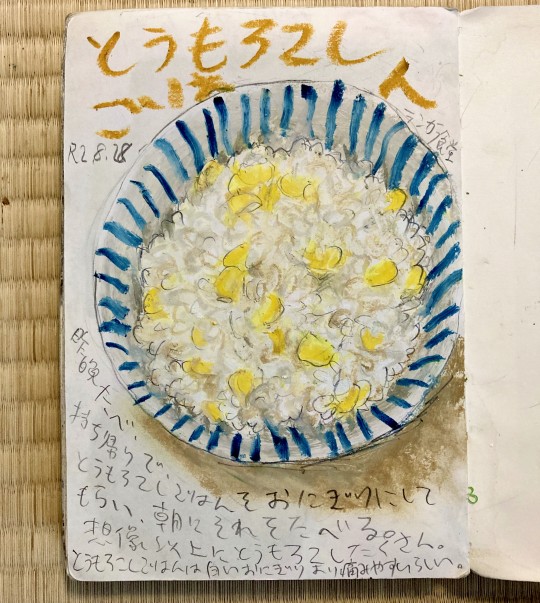 とうもろこし
ごはん
R2.8.28
ランカ食堂
昨晩たべ、
持ち帰りで、
とうもろこしごはんをおにぎりにして
もらい、朝にそれをたべる。
想像以上にとうもろこしたくさん。
とうもろこしごはんは白いおにぎりより痛みやすいらしい。
3